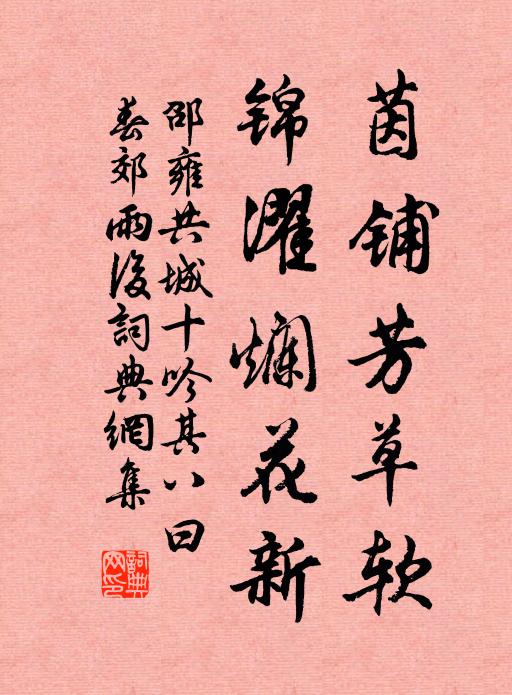 茵铺芳草软
锦濯烂花新
邵雍共城十吟其八曰
春郊雨後詞典網集
詞典网印